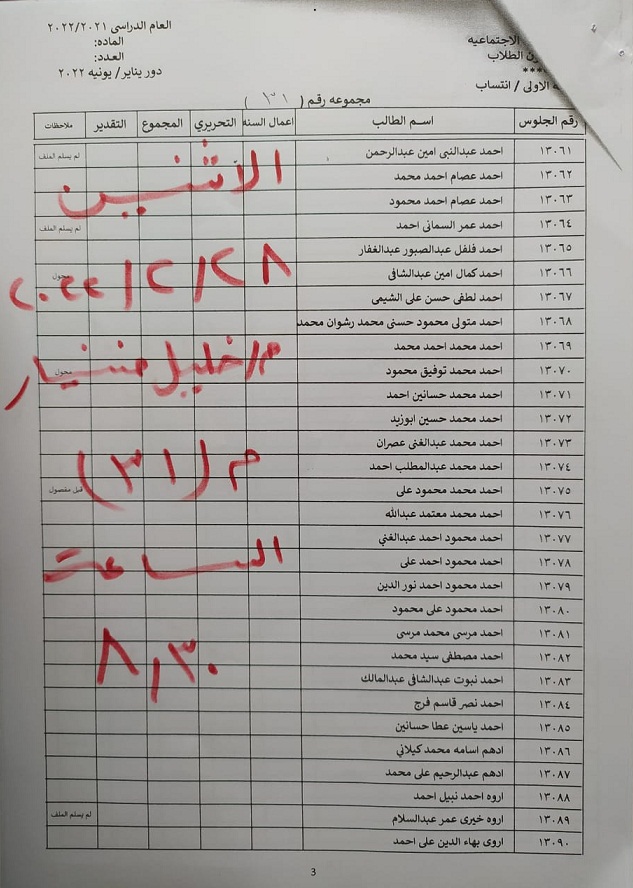 العام الدراسى ٢٠٢٢/٢٠٢١
الاجتماعيه
الماده:
ن الطلاب
العدد:
****
دور يناير/ يونيه ٢٠٢٢
ه الاولى / انتساب
مجموعه رقم ( ٣١ )
رقم الجلوس اسـم الطالب اعمال السنه التحريري المجموع التقدير ملاحظات
١٣٠٦١ احمد عبدالنبى امين عبدالرحمن لم يسلم الملف
١٣٠٦٢ احمد عصام احمد محمد
الأثنين
١٣٠٦٣ احمد عصام احمد محمود
١٣٠٦٤ احمد عمر السمانى احمد لم يسلم الملف
١٣٠٦٥ احمد فلفل عبدالصبور عبدالغفار
١٣٠٦٦ احمد كمال امين عبدالشافى محول
٢٠٢٢/٢/٢٨
١٣٠٦٧ احمد لطفى حسن على الشيمى
١٣٠٦٨ احمد متولى محمود حسنى محمد رشوان محمد
١٣٠٦٩ احمد محمد احمد محمد
م/خليل
١٣٠٧٠ احمد محمد توفيق محمود محول
١٣٠٧١ احمد محمد حسانين احمد
١٣٠٧٢ احمد محمد حسين ابوزيد
١٣٠٧٣ احمد محمد عبدالغنى عصران
١٣٠٧٤ احمد محمد عبدالمطلب احمد
م (٣١)
١٣٠٧٥ احمد محمد محمود على قبل مفصول
١٣٠٧٦ احمد محمد معتمد عبدالله
١٣٠٧٧ احمد محمود احمد عبدالغني
١٣٠٧٨ احمد محمود احمد على
الساعة
١٣٠٧٩ احمد محمود احمد نور الدين
١٣٠٨٠ احمد محمود على محمود
١٣٠٨١ احمد مرسى محمد مرسى
١٣٠٨٢ احمد مصطفى سيد محمد
٨,٣٠
١٣٠٨٣ احمد نبوت عبدالشافى عبدالمالك
١٣٠٨٤ احمد نصر قاسم فرج
١٣٠٨٥ احمد ياسين عطا حسانين
١٣٠٨٦ ادهم اسامه محمد كيلاني
١٣٠٨٧ ادهم عبدالرحيم على محمد
١٣٠٨٨ اروه احمد نبيل احمد
١٣٠٨٩ اروه خيرى عمر عبدالسلام لم يسلم الملف
١٣٠٩٠ اروى بهاء الدين على احمد
3